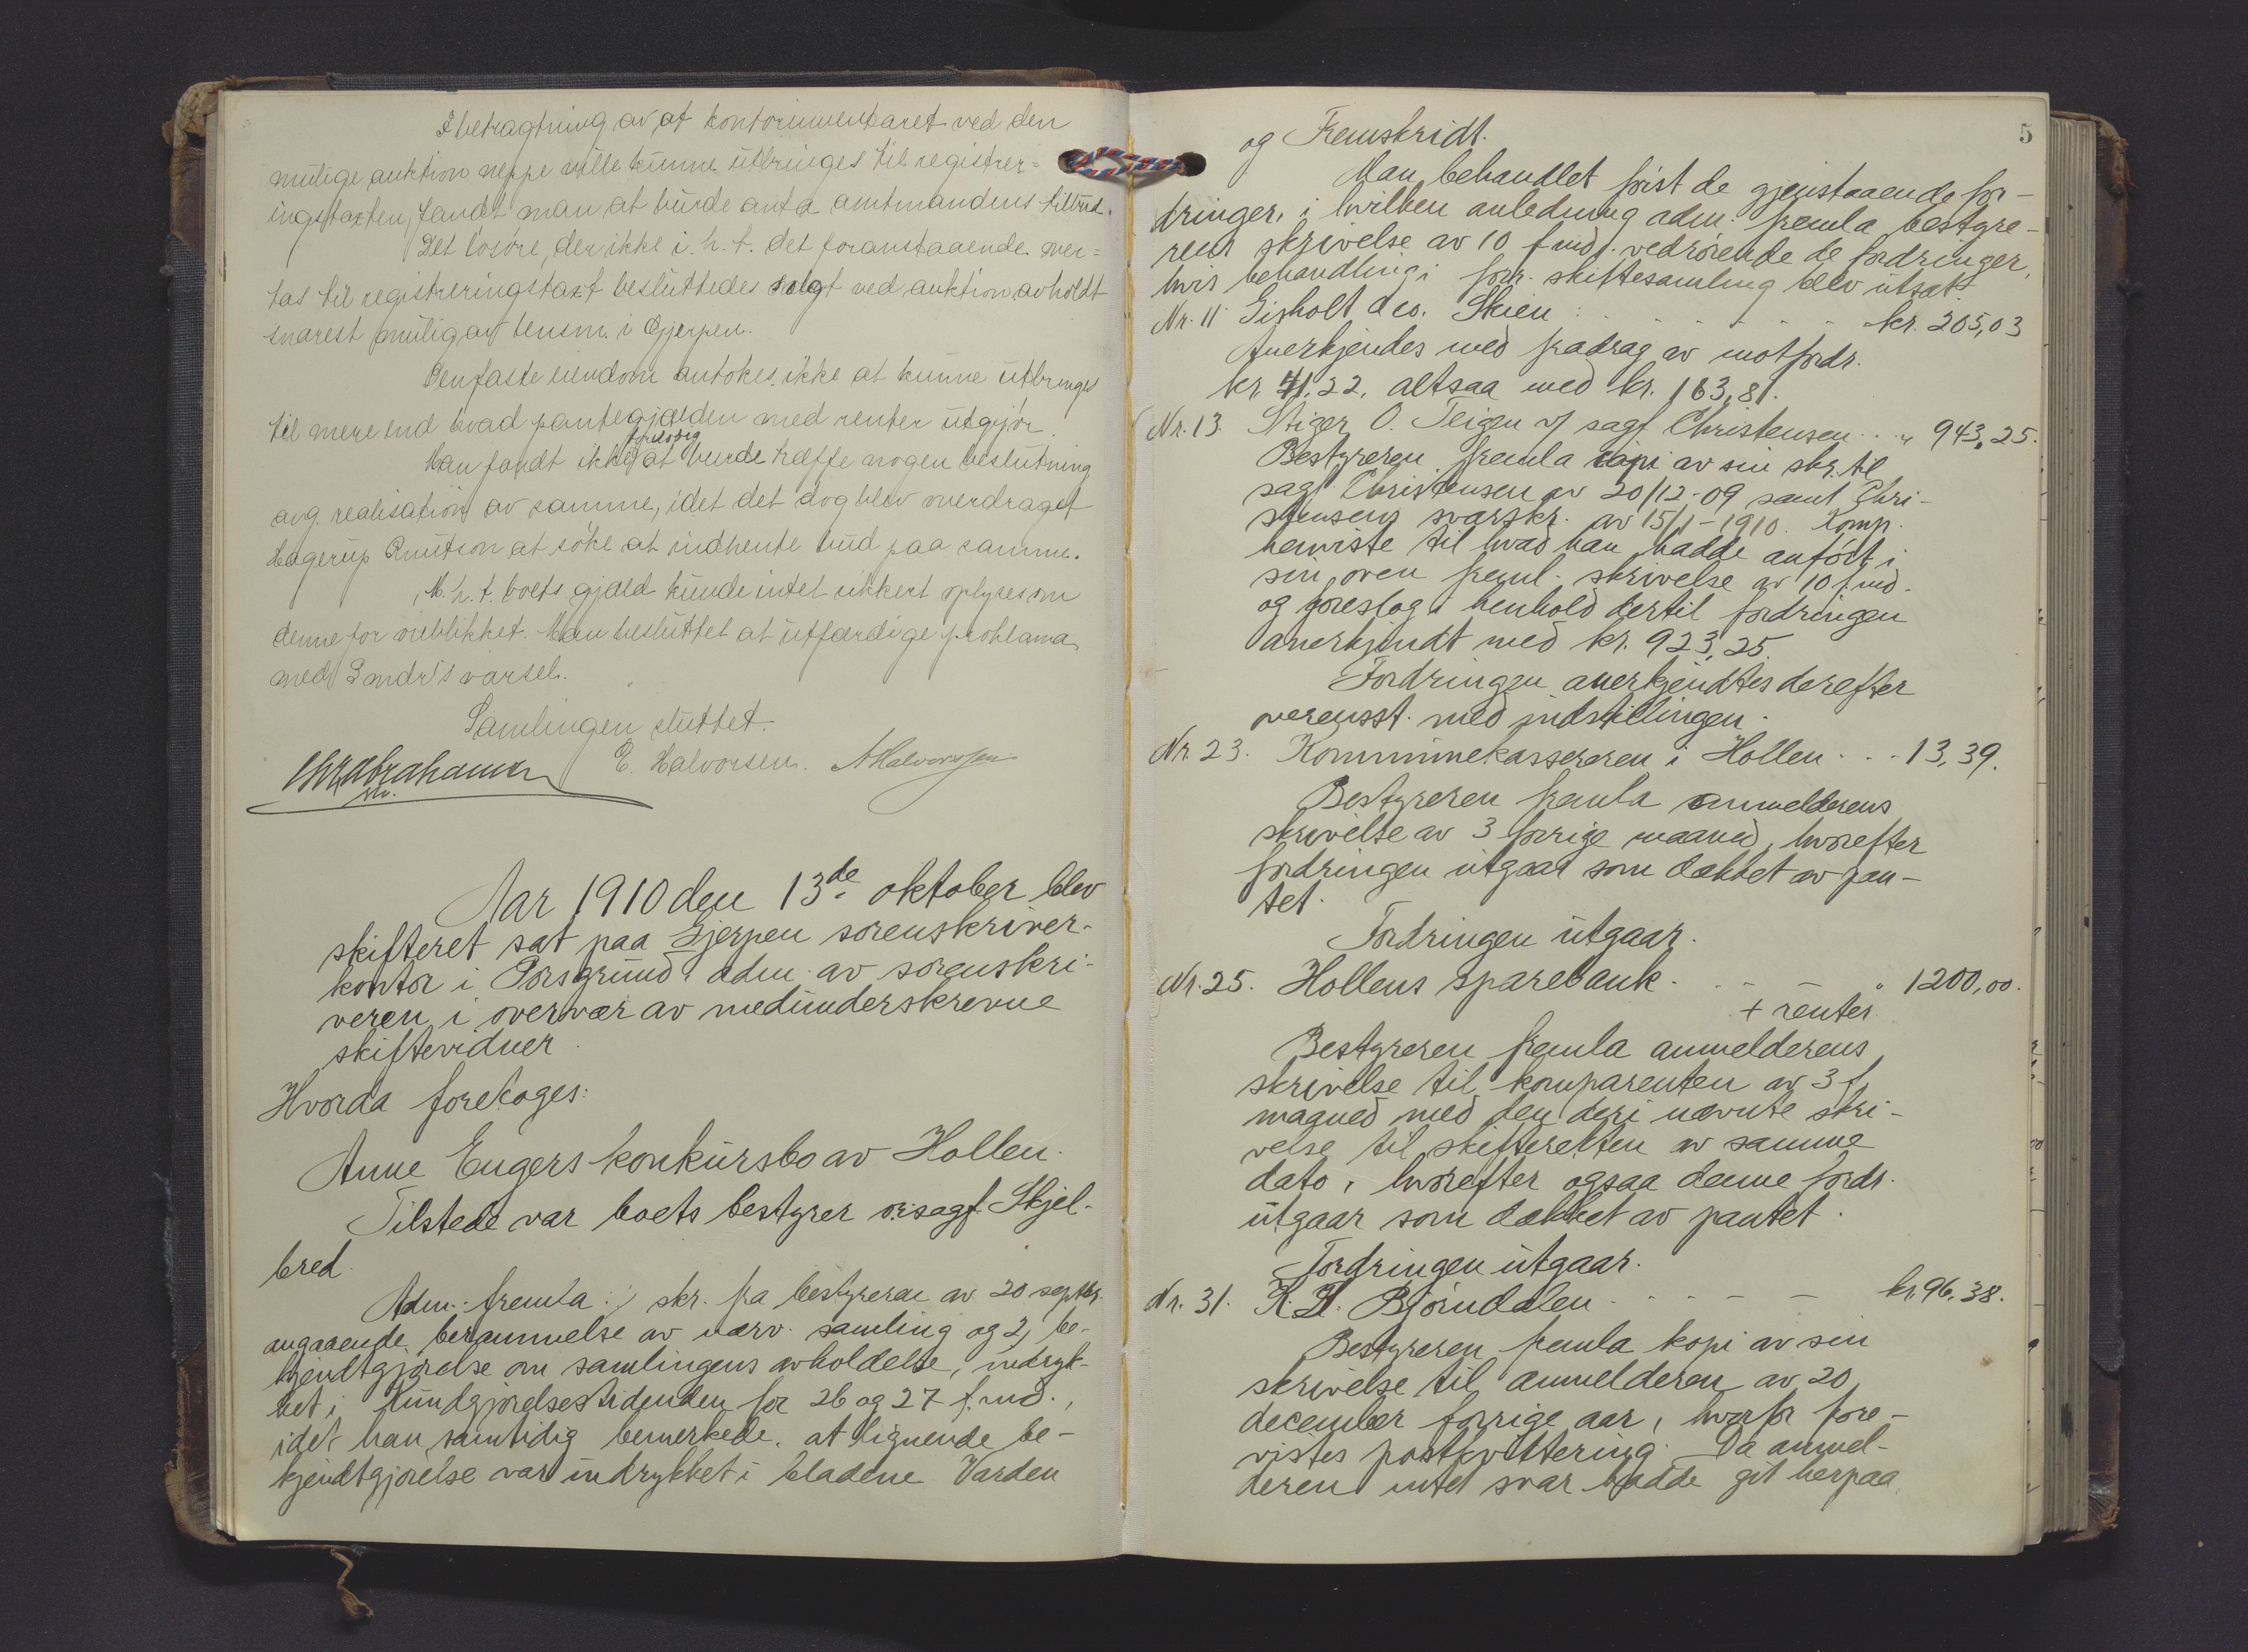 I betragtning av at kontorinventaret ved den
mulige auktion neppe ville kunne utbringes til registrer=
ingstaxten, fandt man at burde anta amtmandens tilbud.
Det lösöre, der ikke i h. t. det foranstaaende over=
tas til registreringstaxt besluttedes solgt ved auktion avholdt
snarest mulig av lensm. i Gjerpen.
Den faste eiendom antokes ikke at kunne utbringes
til mere end hvad pantegjælden med renter utgjör.
Man fandt ikke foreløbig at burde træffe nogen beslutning
ang. realisation av samme, idet det dog blev overdraget
Hagerup Knutson at söke at indhente bud paa samme.
M. h. t. boets gjæld kunde intet sikkert oplyses om
denne for øieblikket. Man besluttet at utfærdige proklama
med 2 mdr's varsel.
Samlingen sluttet.
Chr Abrahamsen E. Halvorsen. A Halvorsen
Aar 1910 den 13de oktober blev
skifteret sat paa Gjerpen sorenskriver-
kontor i Porsgrund adm. av sorenskri-
veren i overvær av medunderskrevne
skiftevidner.
Hvorda foretoges:
Anne Engers konkursbo av Hollen.
Tilstede var boets bestyrer o:sagf. Skjel-
bred.
Adm. fremla: 1, skr. fra bestyreren av 20 septbr.
angaaende berammelse av nærv. samling og 2, be-
kjendtgjørelse om samlingens avholdelse, indryk-
ket i Kundgjørelsestidenden for 26 og 27 f. md.,
idet han samtidig bemerkede, at lignende be-
kjendtgjørelse var indrykket i bladene Varden
5
og Fremskridt.
Man behandlet først de gjenstaaende for-
dringer, i hvilken anledning adm. fremla bestyre-
rens skrivelse av 10 f. md. vedrørende de fordringer,
hvis behandling i forr. skiftesamling blev utsat.
Nr. 11 Eisholt & co. Skien . . . . . . kr. 205,03
Anerkjendes med fradrag av motfordr.
kr. 41,22, altsaa med kr. 163,81.
Nr. 13. Stiger O. Teigen v/ sagf. Christensen . . " 943,25.
Bestyreren fremla kopi av sin skr. til
sagf. Christensen av 20/12-09 samt Chri-
stensens svarskr. av 15/1-1910. Komp.
henviste til hvad han hadde anført i
sin oven freml. skrivelse av 10 f. md.
og foreslog i henhold dertil fordringen
anerkjendt med kr. 923,25.
Fordringen anerkjendtes derefter
overensst. med indstillingen.
Nr. 23. Kommunekassereren i Hollen . . . 13,39.
Bestyreren fremla anmelderens
skrivelse av 3 forrige maaned, hvorefter
fordringen utgaar som dækket av pan-
tet.
Fordringen utgaar.
Nr. 25. Hollens sparebank . . . . " 1200,00.
+ renter.
Bestyreren fremla anmelderens
skrivelse til komparenten av 3 f.
maaned med den deri nævnte skri-
velse til skifteretten av samme
dato, hvorefter ogsaa denne fordr.
utgaar som dækket av pantet.
Fordringen utgaar.
Nr. 31. K. Bjørndalen . . . . . kr. 96,38.
Bestyreren fremla kopi av sin
skrivelse til anmelderen av 20
december forrige aar, hvorfor fore-
vistes postkvittering. Da anmel-
deren intet svar hadde git herpaa